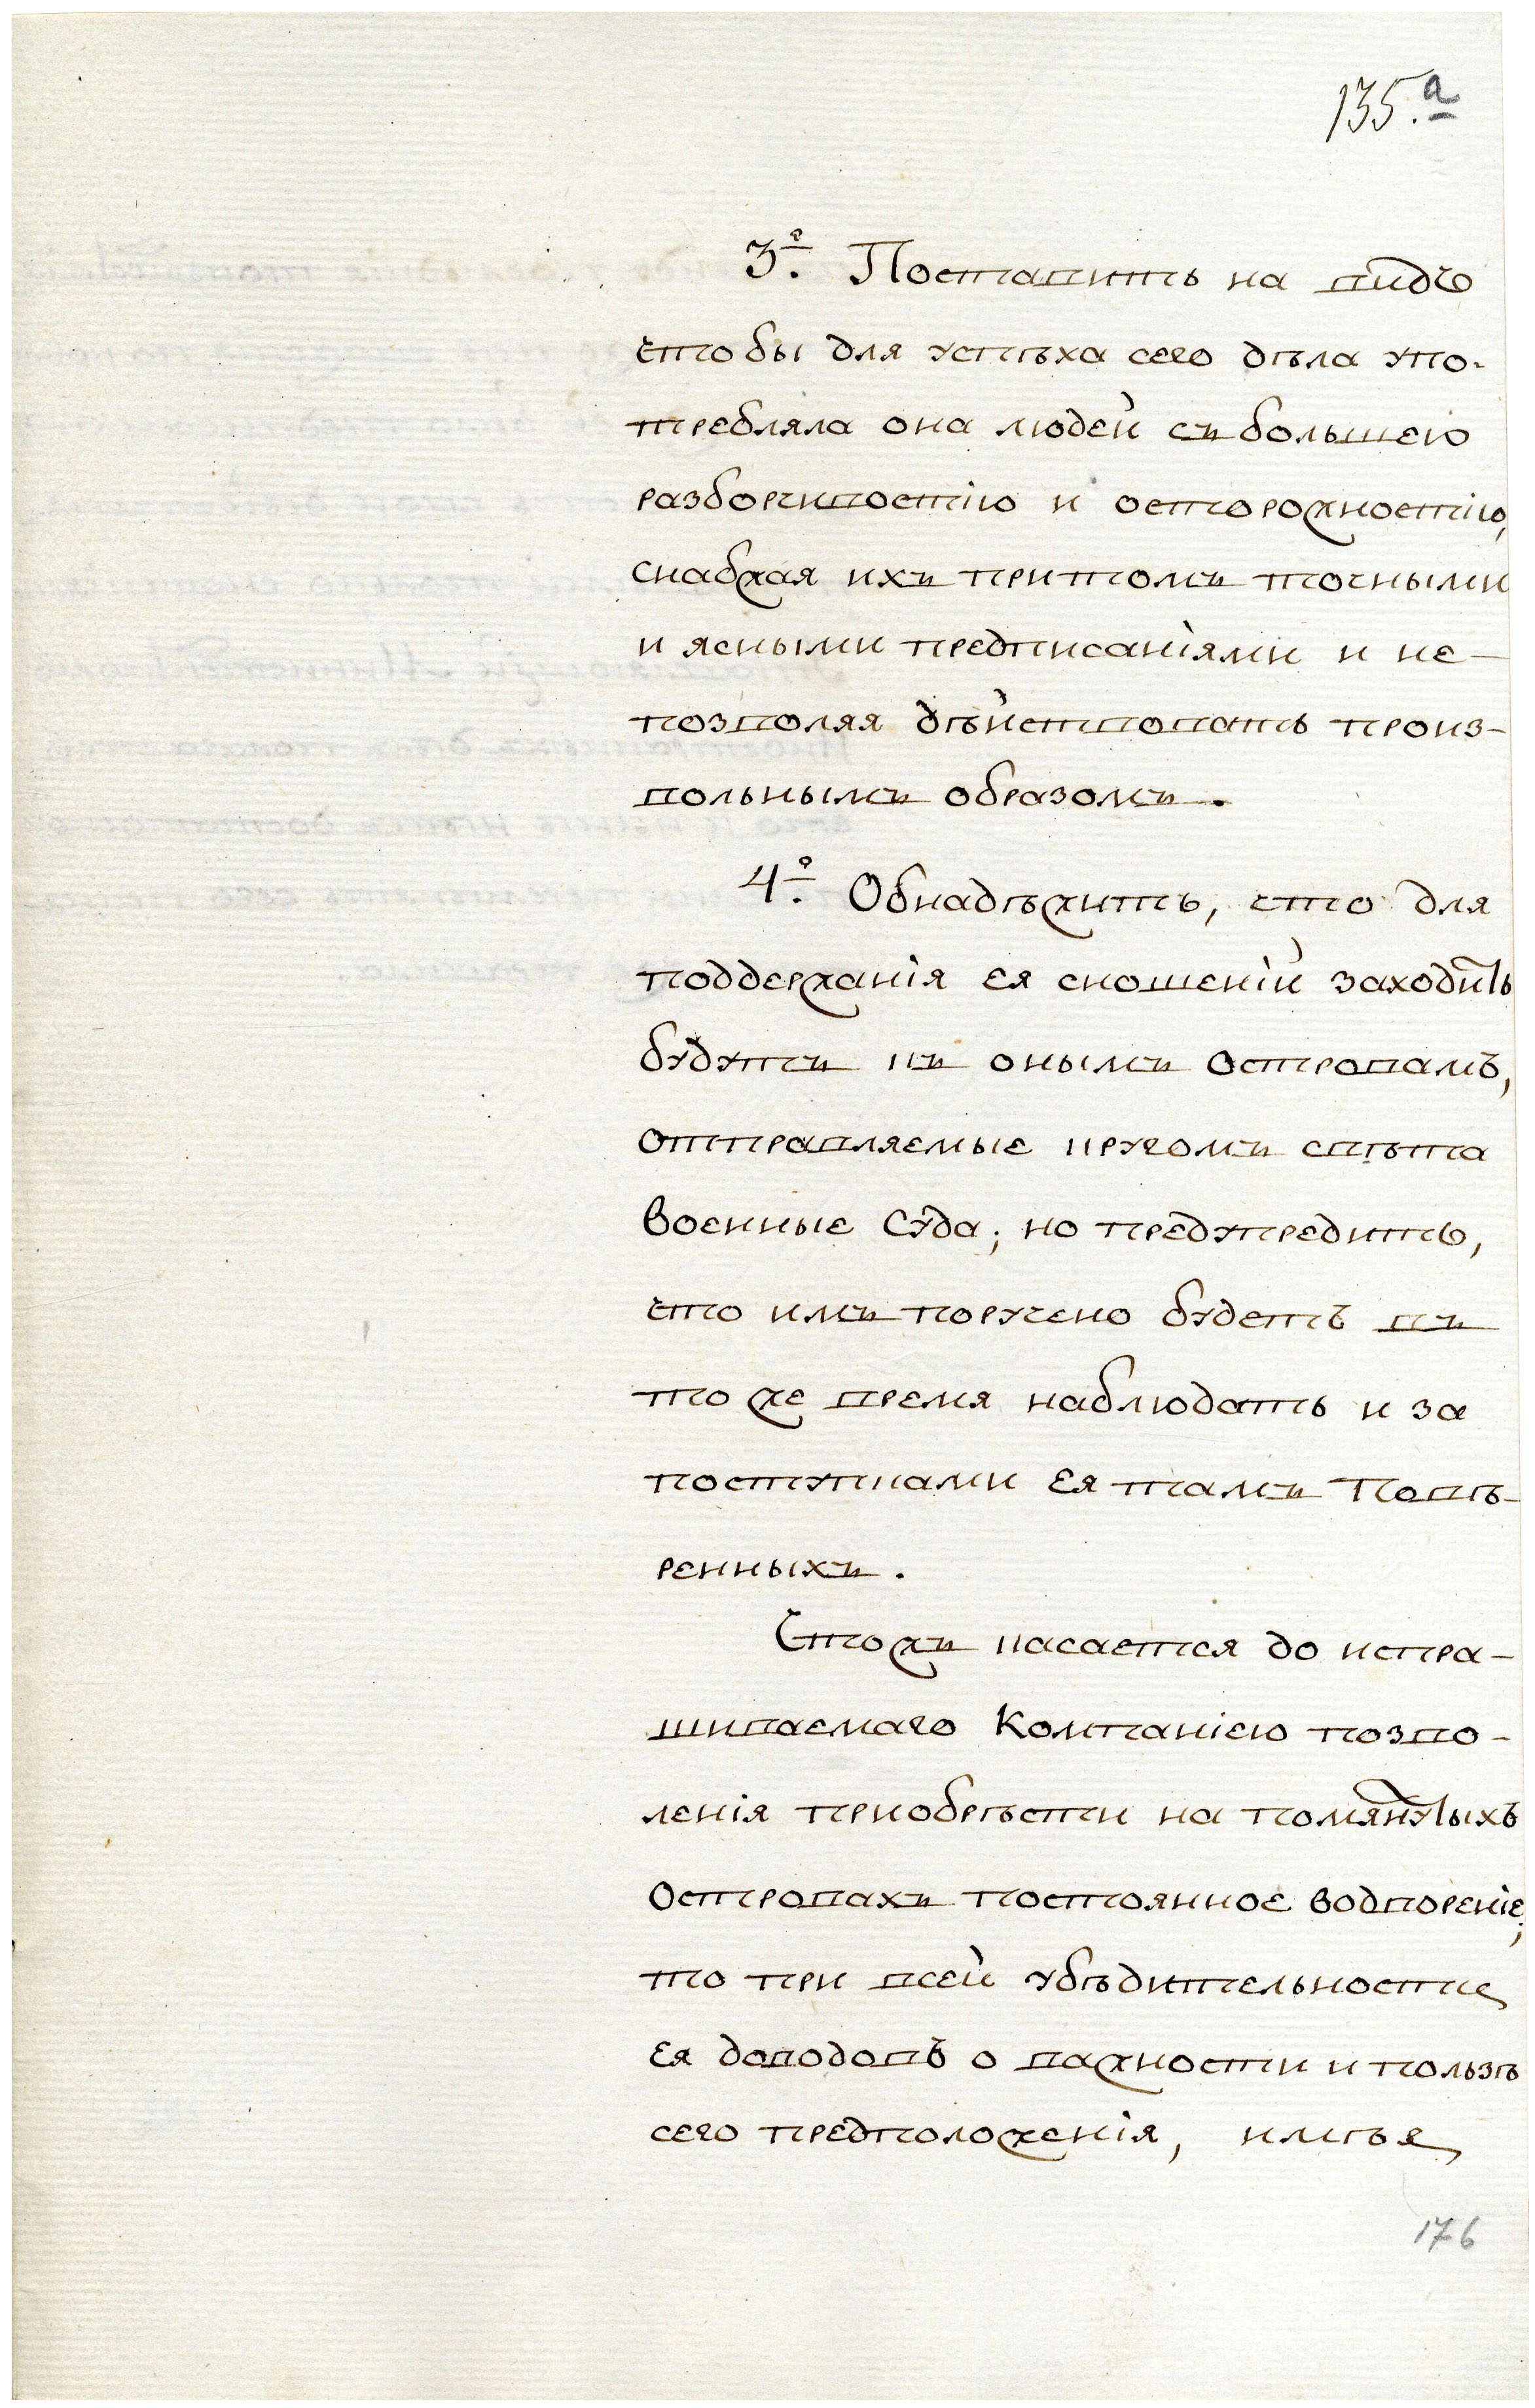 135.а
3е. Поставить на видъ
чтобы для успѣха сего дѣла упо-
требляла она людей съ большею
разборчивостію и осторожностію,
снабжая ихъ притомъ точными
и ясными предписаніями и не-
позволяя дѣйствовать произ-
вольнымъ образомъ.
4е. Обнадѣжить, что для
поддержанія ея сношеній заходить
будутъ къ онымъ Островамъ,
отправляемые кругомъ свѣта
военные Суда; но предупредить,
что имъ поручено будетъ въ
то же время наблюдать и за
поступками ея тамъ Повѣ-
ренныхъ.
Чтожъ касается до испра-
шиваемаго Компаніею позво-
ленія приобрѣсти на помянутыхъ
Островахъ постоянное водвореніе;
то при всей убѣдительности
ея доводовъ о важности и пользѣ
сего предположенія, имѣя
176